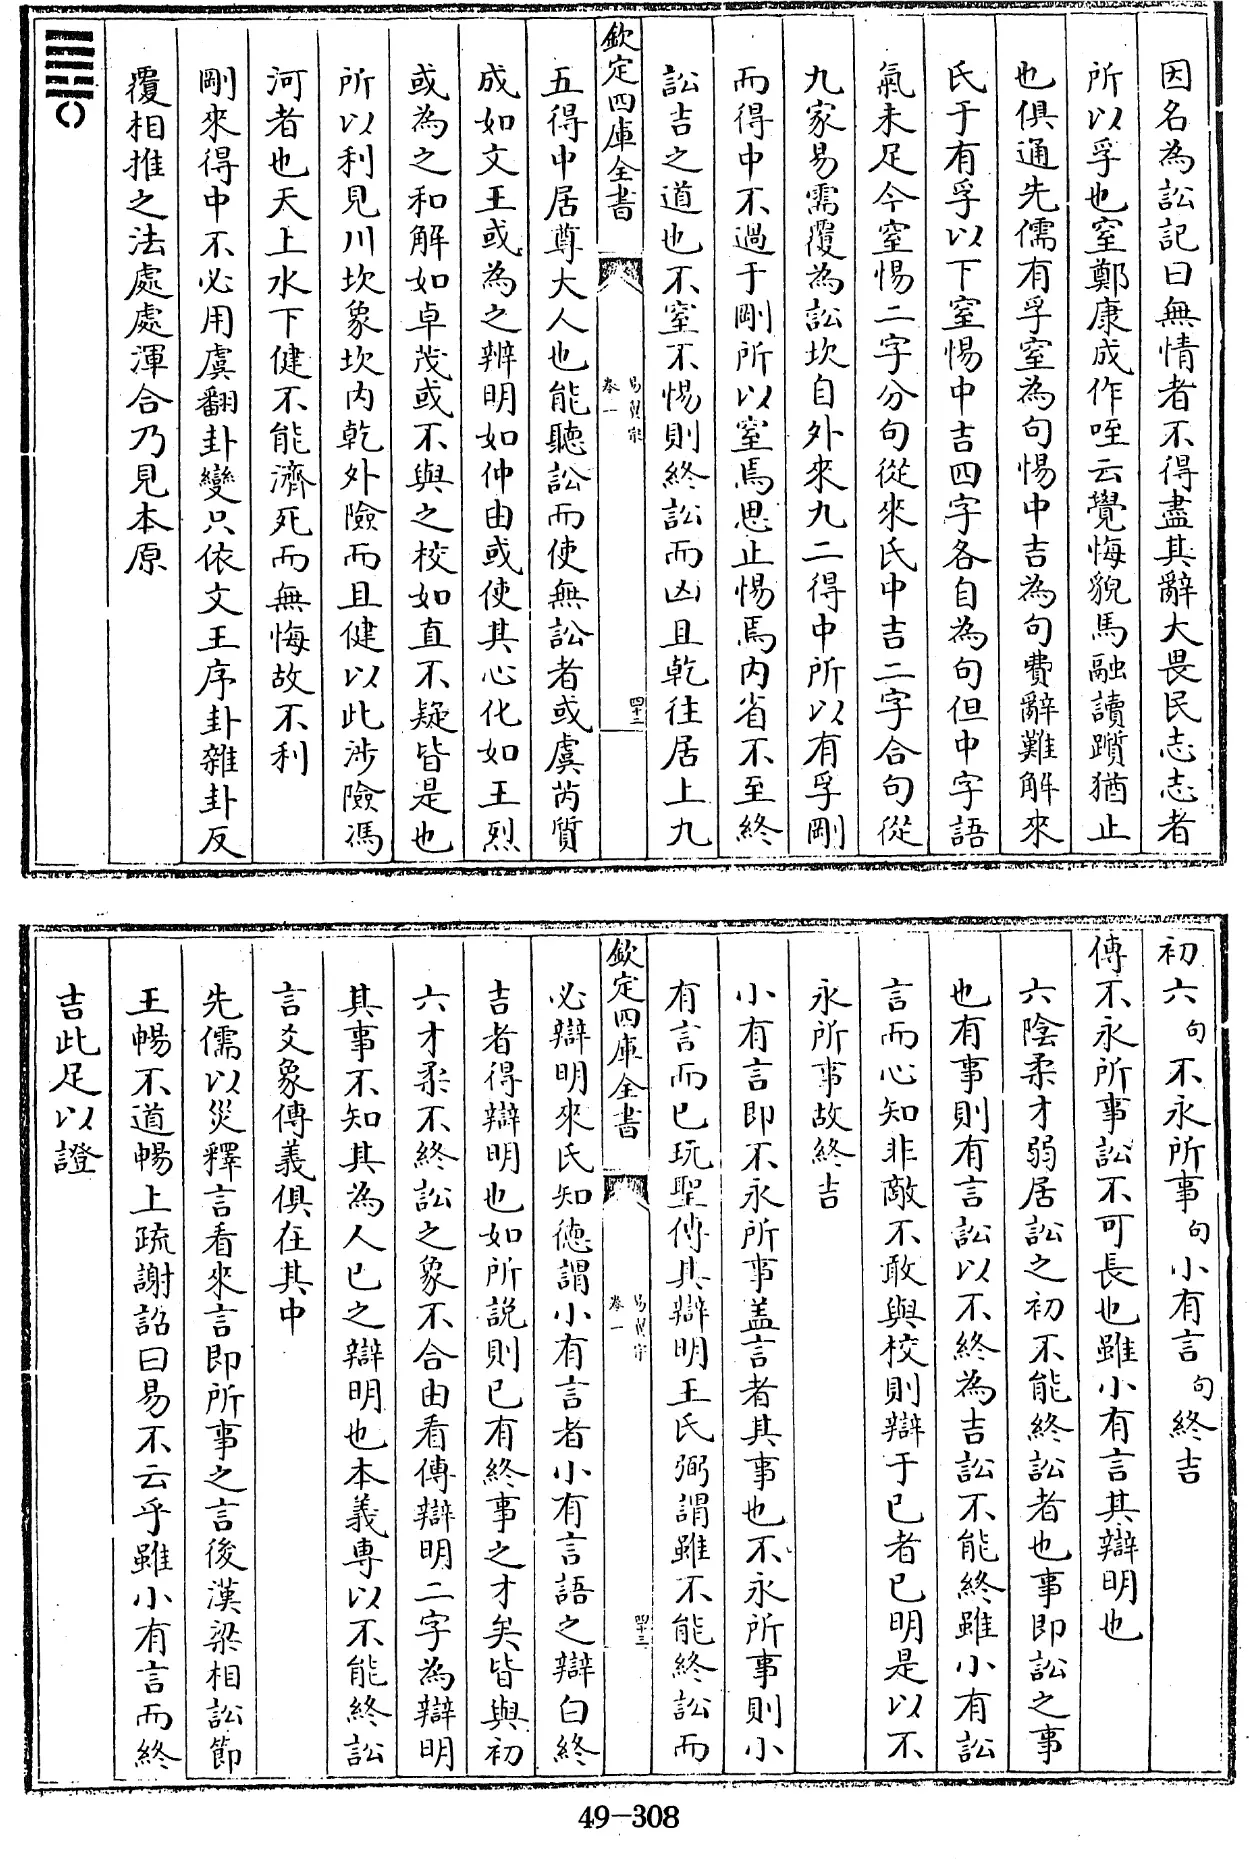 因名為訟記曰無情者不得盡其辭大畏民志志者
所以孚也窒鄭康成作咥云覺悔貌馬融讀躓猶止
也俱通先儒有孚窒為句惕中吉為句費辭難解來
氏于有孚以下窒惕中吉四字各自為句但中字語
氣未足今窒惕二字分句從來氏中吉二字合句從
九家易需覆為訟坎自外來九二得中所以有孚剛
而得中不過于剛所以窒焉思止惕焉内省不至終
訟吉之道也不窒不惕則終訟而凶且乾往居上九
欽定四庫全書
易翼宗
卷一
四十二
五得中居尊大人也能聽訟而使無訟者或虞芮質
成如文王或為之辨明如仲由或使其心化如王烈
或為之和解如卓茂或不與之校如直不疑皆是也
所以利見川坎象坎内乾外險而且健以此涉險馮
河者也天上水下健不能濟死而無悔故不利
剛來得中不必用虞翻卦變只依文王序卦雜卦反
覆相推之法處處渾合乃見本原
初六句不永所事句小有言句終吉
傳不永所事訟不可長也雖小有言其辯明也
六陰柔才弱居訟之初不能終訟者也事即訟之事
也有事則有言訟以不終為吉訟不能終雖小有訟
言而心知非敵不敢與校則辯于已者已明是以不
永所事故終吉
小有言即不永所事盖言者其事也不永所事則小
有言而已玩聖傳其辯明王氏弼謂雖不能終訟而
欽定四庫全書
易翼宗
卷一
四十三
必辯明來氏知德謂小有言者小有言語之辯白終
吉者得辯明也如所説則已有終事之才矣皆與初
六才柔不終訟之象不合由看傳辯明二字為辯明
其事不知其為人已之辯明也本義専以不能終訟
言爻象傳義俱在其中
先儒以災釋言看來言即所事之言後漢梁相訟節
王暢不道暢上疏謝詔曰易不云乎雖小有言而終
吉此足以證
49-308